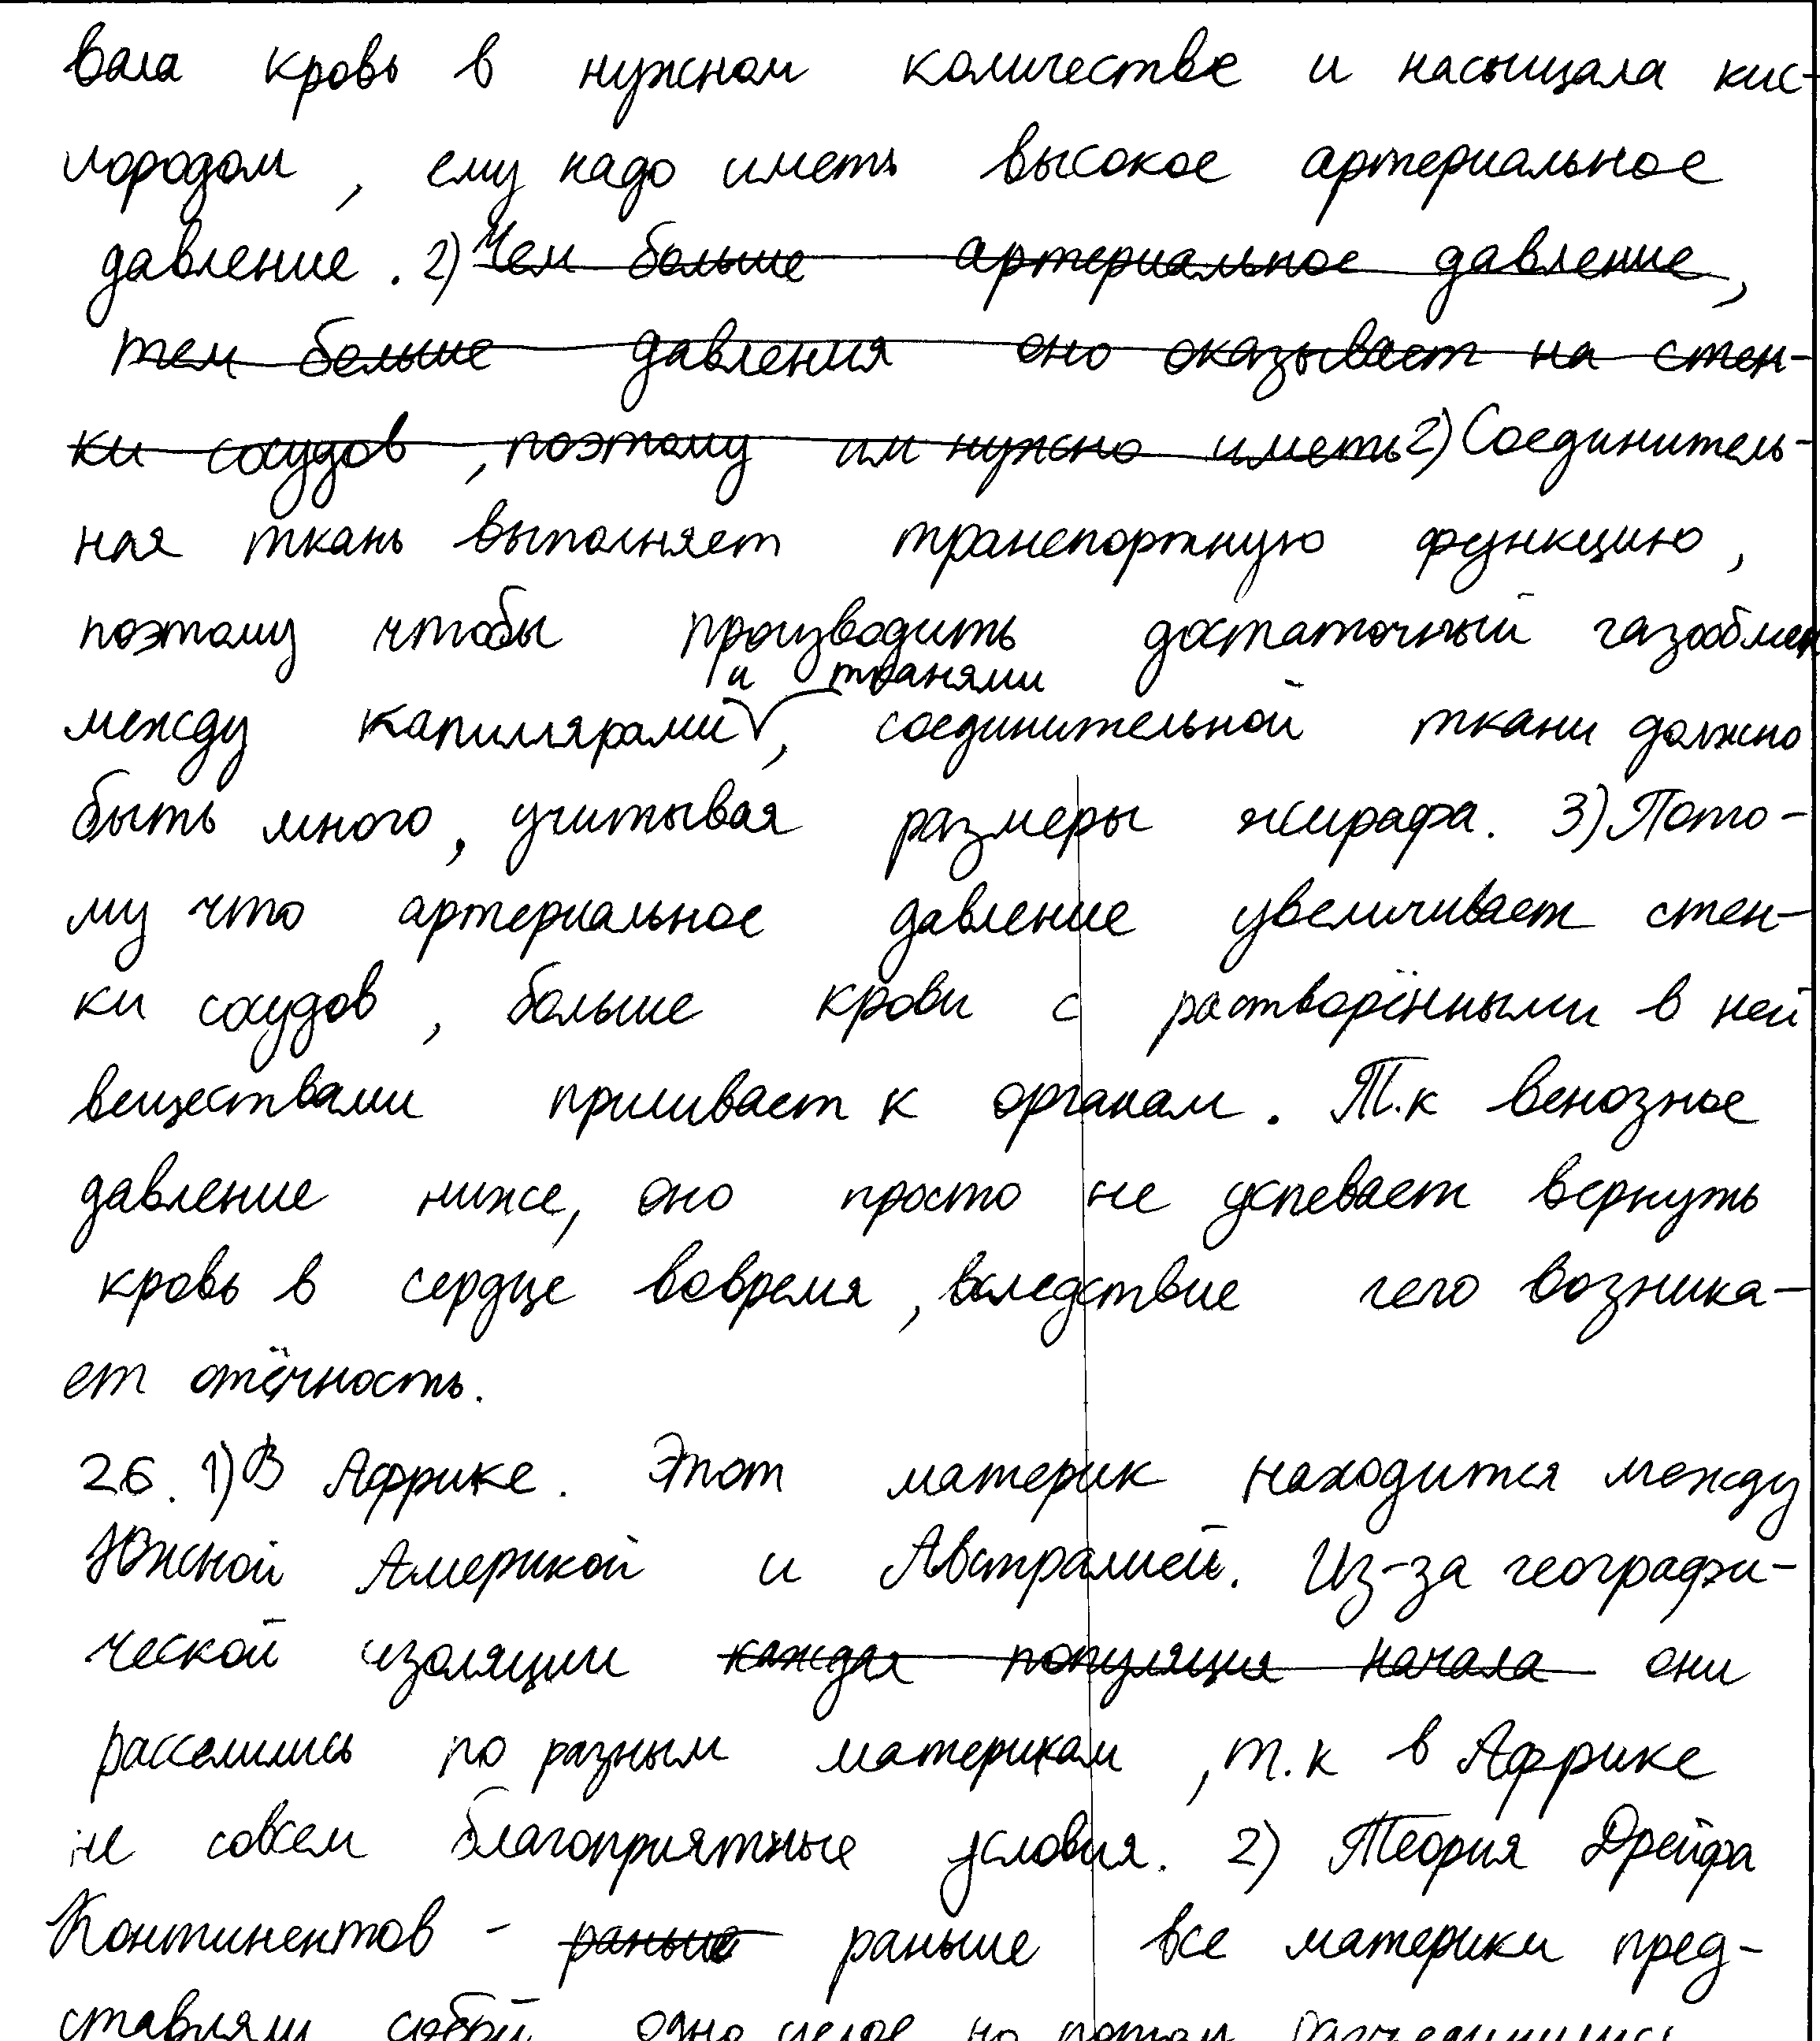 вала кровь в нужном количестве и насыщала кис-
лородом, ему надо иметь высокое артериальное
давление. 2) Чем больше артериальное давление,
тем больше давления оно оказывает на стен-
ки сосудов, поэтому им нужно иметь 2) Соединитель-
ная ткань выполняет транспортную функцию,
поэтому чтобы производить достаточный газообмен
и тканями
между капиллярами, соединительной ткани должно
быть много, учитывая размеры жирафа. 3) Пото-
му что артериальное давление увеличивает стен-
ки сосудов, больше крови с растворёнными в ней
веществами приливает к органам. Т.к венозное
давление ниже, оно просто не успевает вернуть
кровь в сердце вовремя, вследствие чего возника-
ет отёчность.
26. 1) В Африке. Этот материк находится между
Южной Америкой и Австралией. Из-за географи-
ческой изоляции каждая популяция начала они
расселились по разным материкам, т.к в Африке
не совсем благоприятные условия. 2) Теория Дрейфа
Континентов - раньше раньше все материки пред-
ставляли собой одно целое но потом разъединились